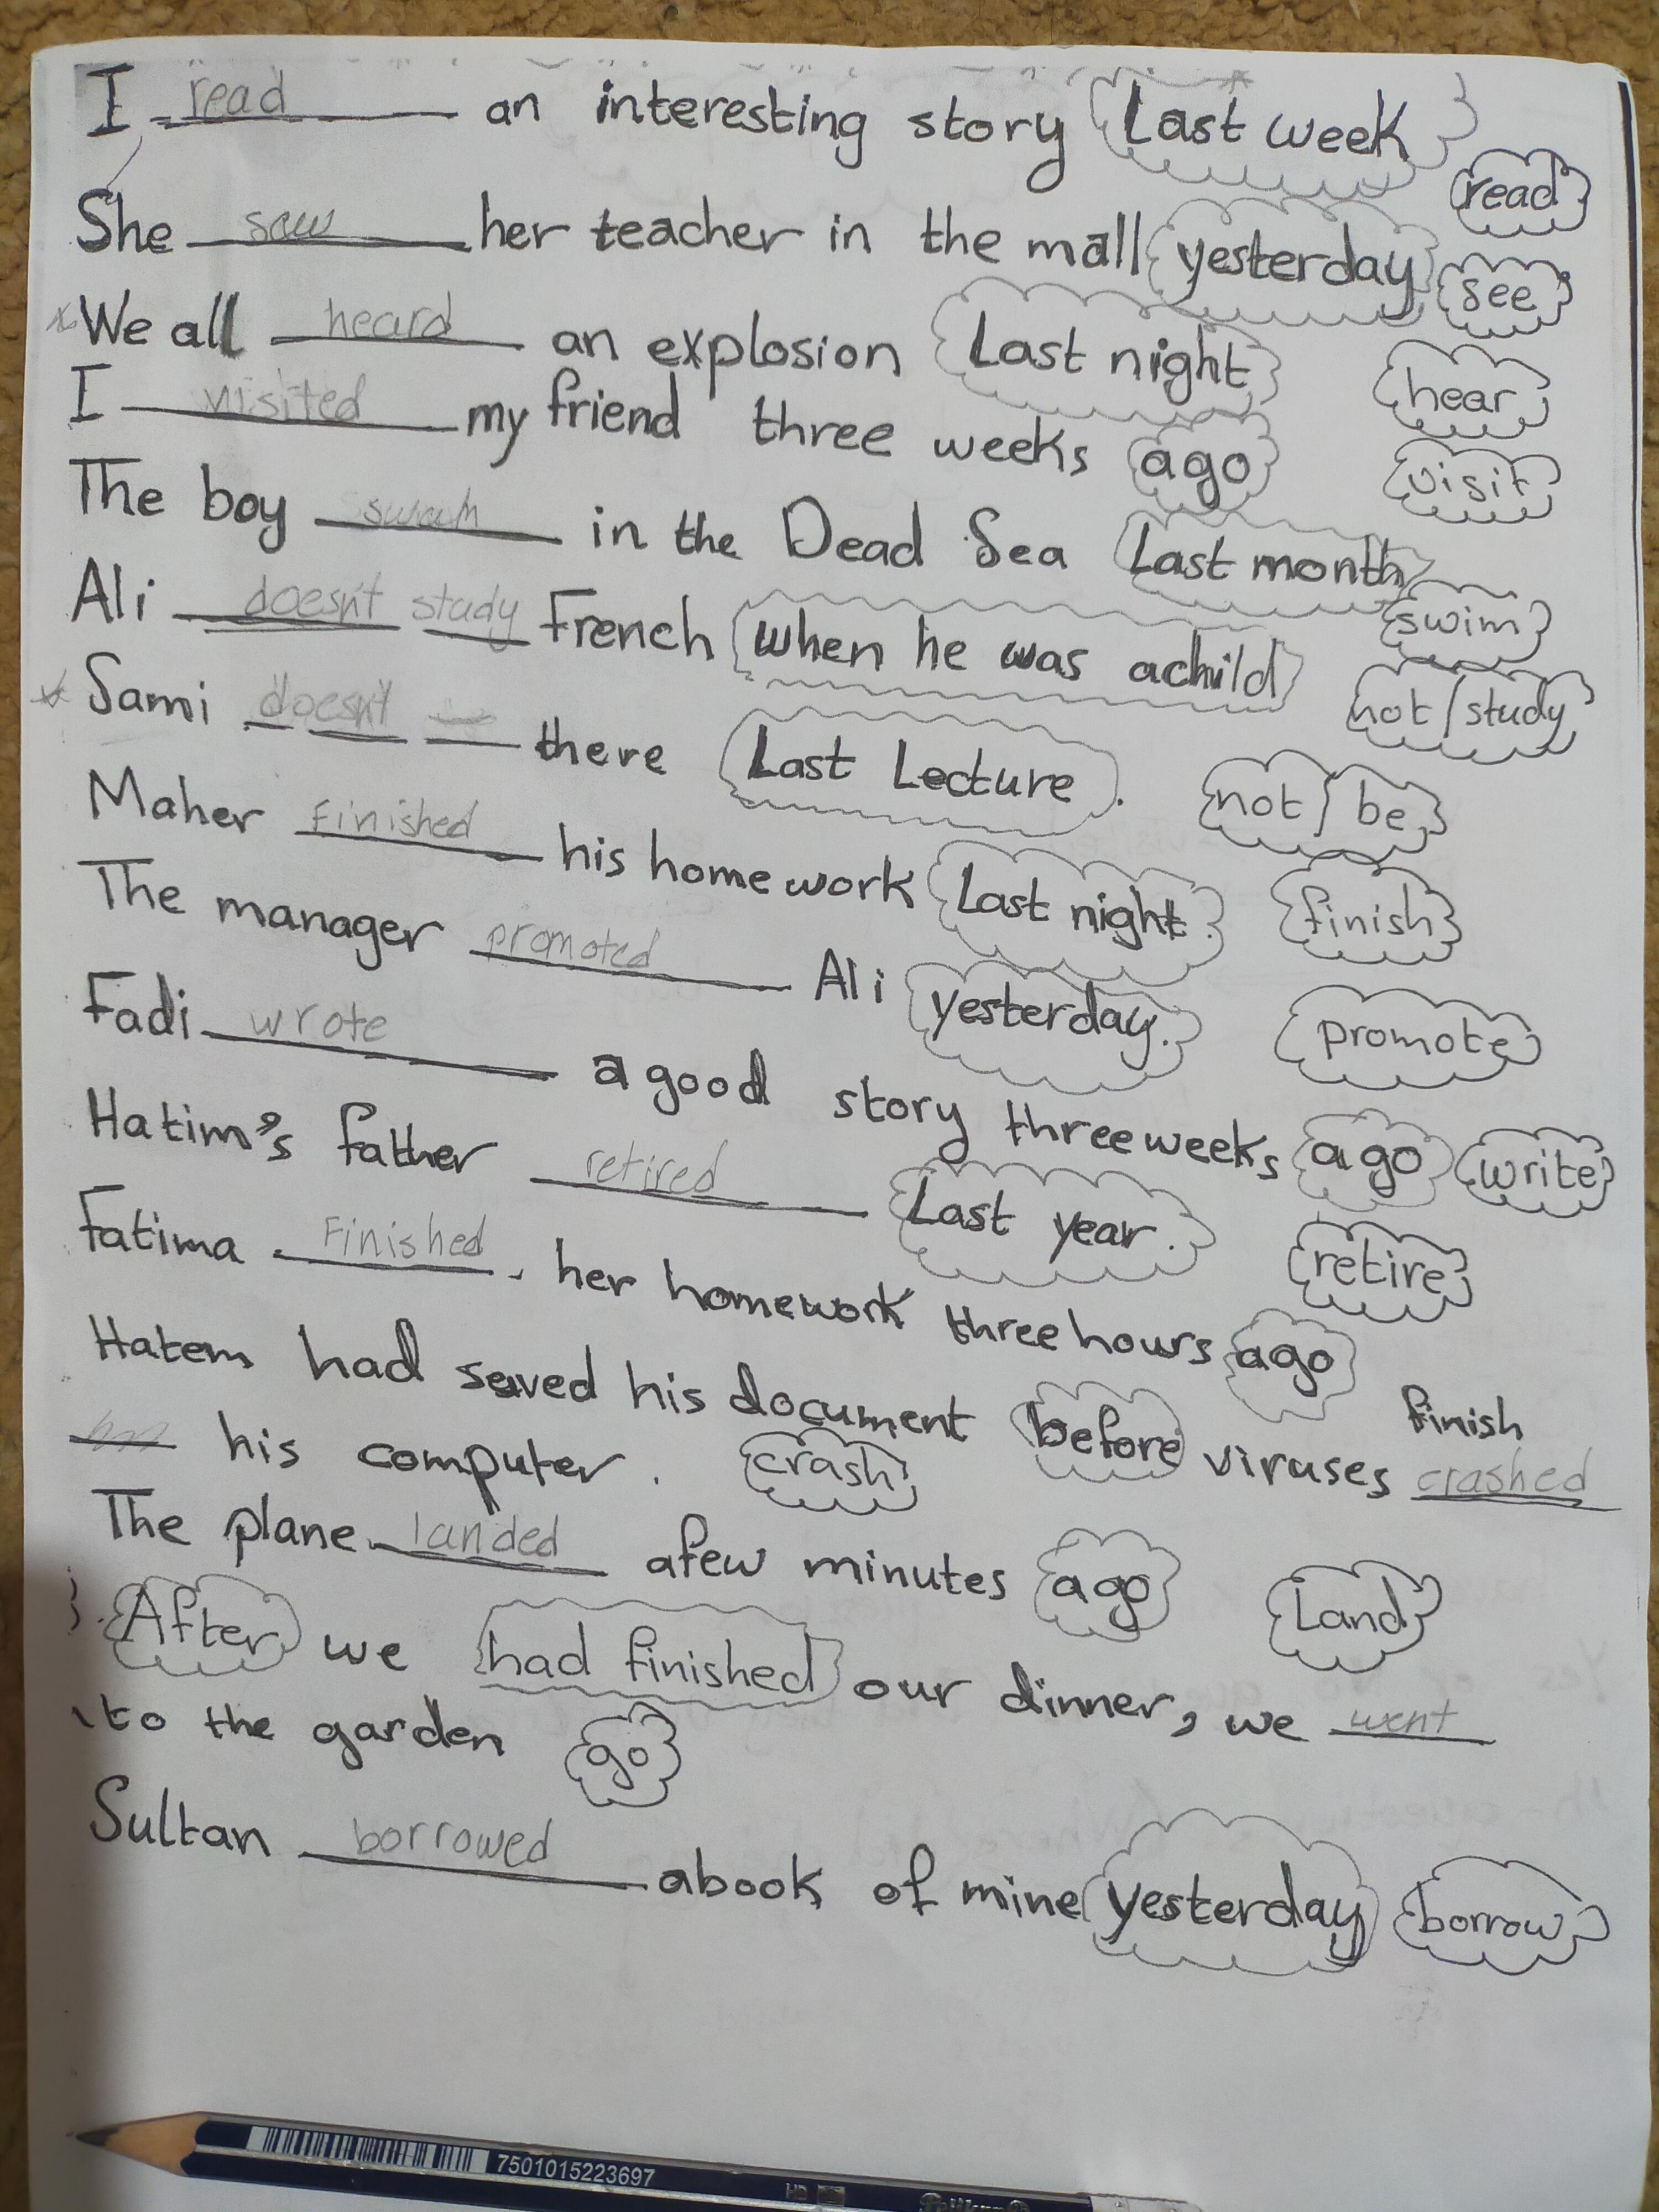 I read an interesting story Last week
read
She saw her teacher in the mall yesterday
see
We all heard an explosion Last night
hear
I visited my friend three weeks ago
visit
The boy swam in the Dead Sea Last month
swim
Ali doesn't study French when he was a child
not / study
Sami doesn't there Last Lecture.
not / be
Maher Finished his home work Last night.
finish
The manager promoted Ali yesterday.
promote
Fadi wrote a good story three weeks ago write
Hatim's father retired Last year.
retire
Fatima Finished her homework three hours ago
finish
Hatem had saved his document before viruses crashed
his computer. crash
The plane landed a few minutes ago
Land
After we had finished our dinner, we went
to the garden go
Sultan borrowed a book of mine yesterday borrow
7501015223697